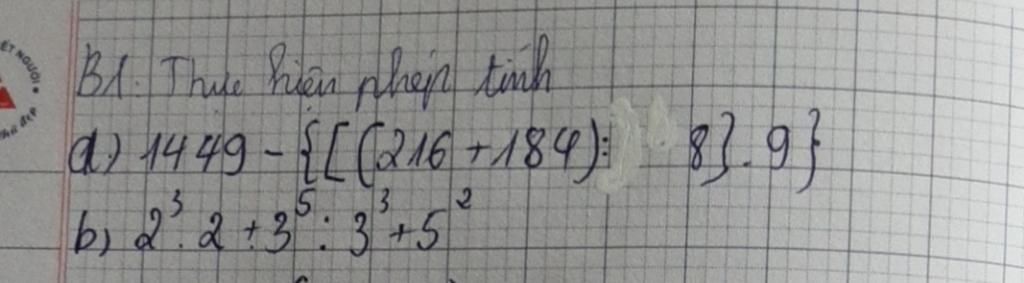 ẾT NGƯỜI
B1: Thực hiện phép tính
a) 1449 - {[(216 + 184) : 8] . 9}
b) 2³ . 2 + 3⁵ : 3³ + 5²